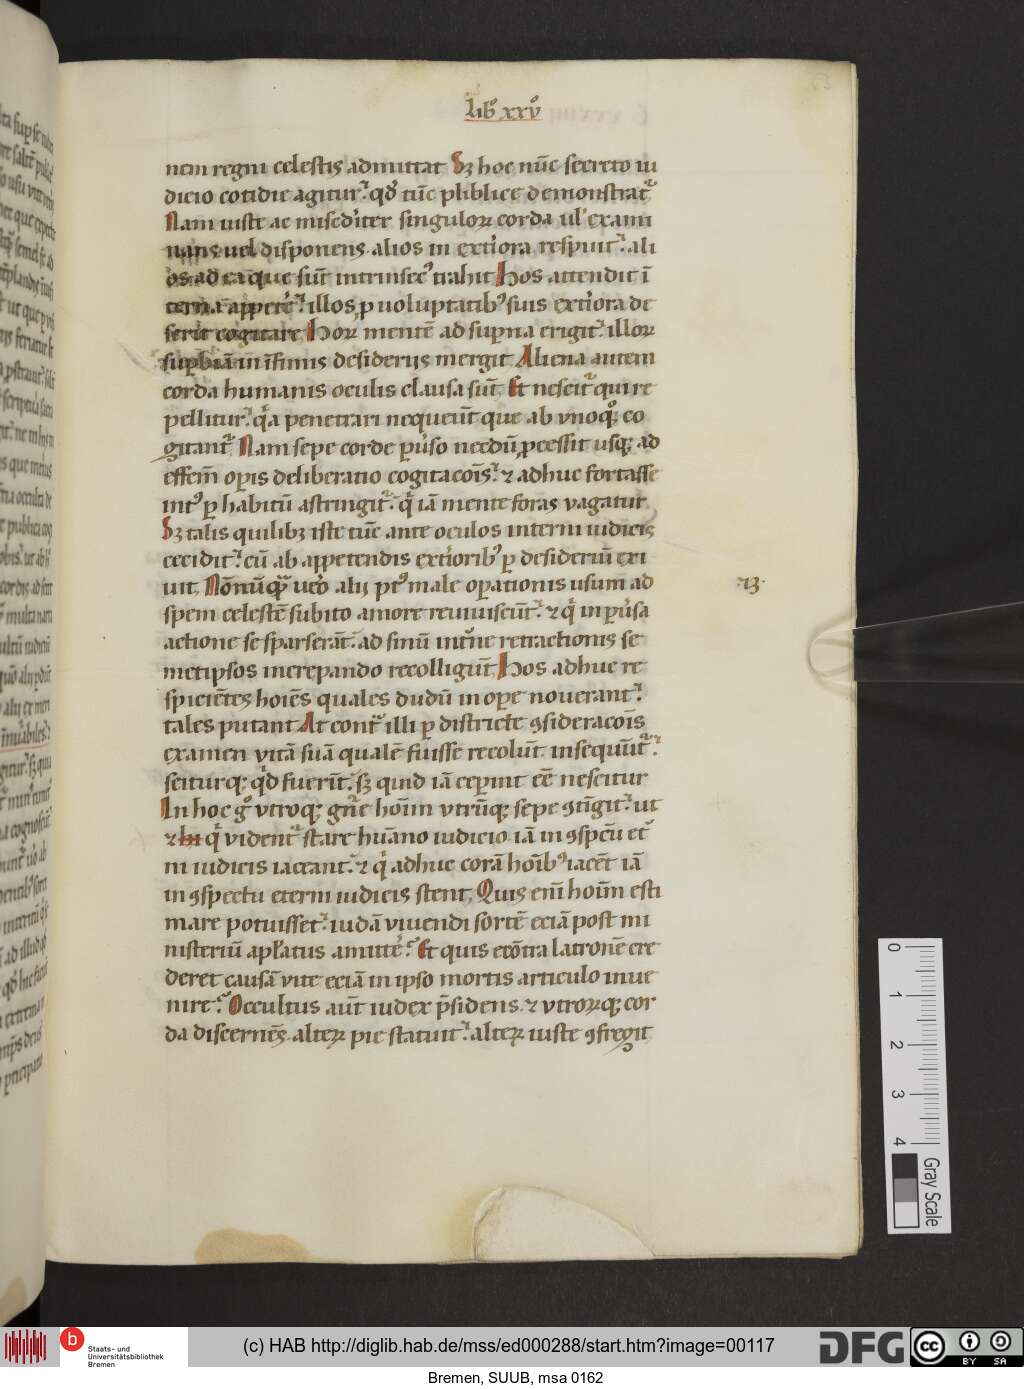 Lib᷒ xxvͦ
nem regni celestis admittat Sꝫ hoc nūc secreto iu
dicio cotidie agitur. qđ tūc publice demonstrat᷑
Nam iuste ac misedr̄iter singulorꝝ corda ul' exami
nans uel disponens. alios in exti'ora respuit. ali
os ad ea que sūt intrinsec᷒ trahit Hos attendit ī
terna appete'. illos ꝓ uoluptatib᷒ suis exti'ora de
serit cogitare Horꝝ mentē ad suꝑna erigit. illorꝝ
suꝑbiā in īfimis desiderijs mergit Aliena autem
corda humanis oculis clausa sūt Et nescit᷑ qui re
pellitur. qͥa penetrari nequeūt que ab vnoqͦꝫ co
gitant᷑ Nam sepe corde puͥso necdū ꝓcessit usqꝫ ad
effem̄ opis deliberatio cogitacōis. ⁊ adhuc fortasse
int᷒ ꝑ habitū astringit᷑. qͥ iā mente foras vagatur
Sꝫ talis quilibꝫ iste tūc ante oculos interni iudicis
cecidit. cū ab appetendis exti'orib᷒ ꝑ desideriū exi
uit Nōnūqᷓ ue'o alij pt᷒ male oꝑationis usum ad
spem celestē subito amore reuiuiscūt. ⁊ qͥ in puͥsa
actione se sparserāt. ad sinū int'ne retractionis se
metipsos increpando recolligūt Hos adhuc re
spiciētes hoīes quales dudū in oꝑe nouerant.
tales putant At contᷓ illi ꝑ districte ꝯsideracōis
examen vitā suā qualē fuisse recolūt insequūt᷑.
sciturqꝫ qͥd fuerīt. sꝫ quid iā ceꝑint eē nescitur
In hoc gͦ vtroqꝫ gn̄e hoīm vtrūqꝫ sepe ꝯtīgit. ut
⁊ hii qͥ vident᷑ stare hūano iudicio iā in ꝯspcū et᷑
ni iudicis iaceant. ⁊ qͥ adhuc corā hoīb᷒ iacēt iā
in ꝯspectu eterni iudicis stent Quis eni' hoūm esti
mare potuisset. iudā viuendi sortē eciā post mi
nisteriū apl'atus amitte'. Et quis ecōtra latronē cre
deret causā vite eciā in ipso mortis articulo inue
nire. Occultus aūt iudex p̄sidens. ⁊ vtrorꝝqꝫ cor
da discernēs alterꝝ pie statuit. alterꝝ iuste ꝯfregit
.13.
0
1
2
3
4
Gray Scale
b
Staats- und
Universitätsbibliothek
Bremen
(c) HAB http://diglib.hab.de/mss/ed000288/start.htm?image=00117
DFG
cc
BY SA
Bremen, SUUB, msa 0162